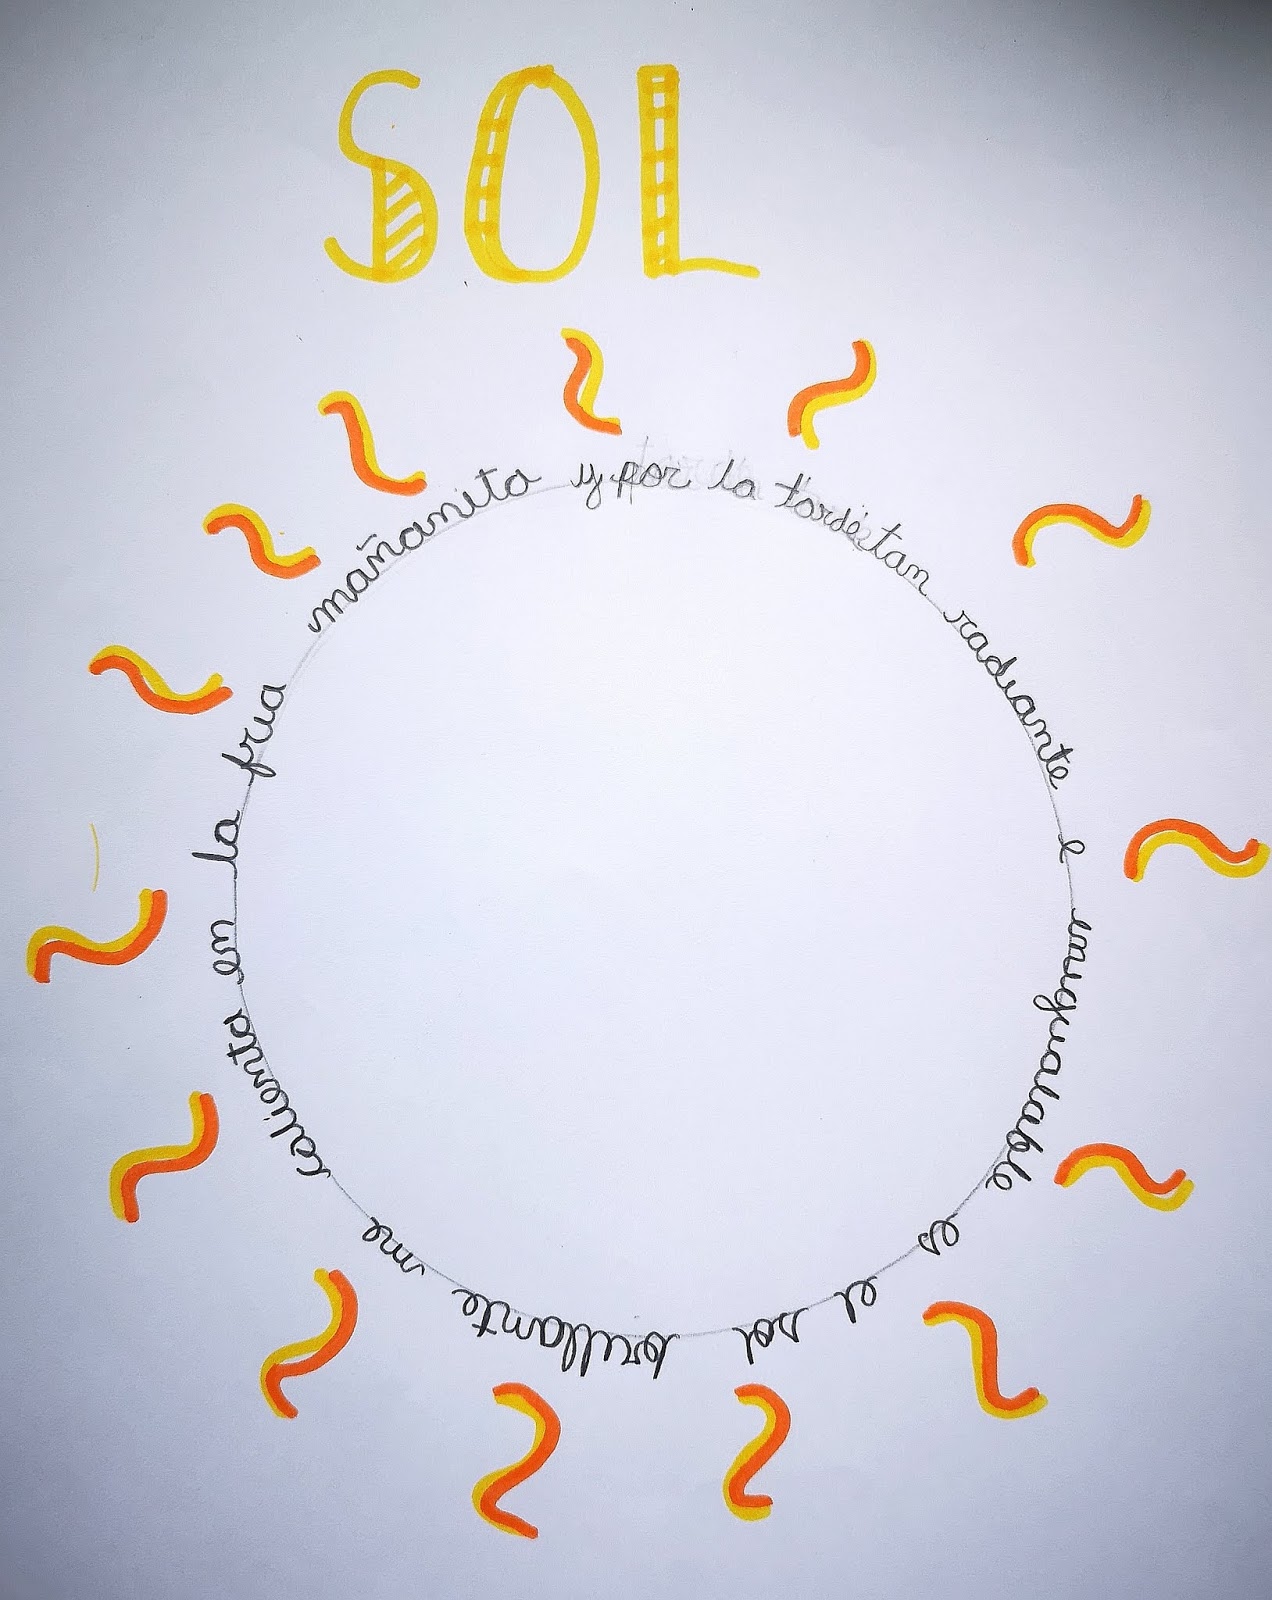 SOL
el sol brillante me calienta en la fria mañanita y por la tarde tan radiante e inigualable es